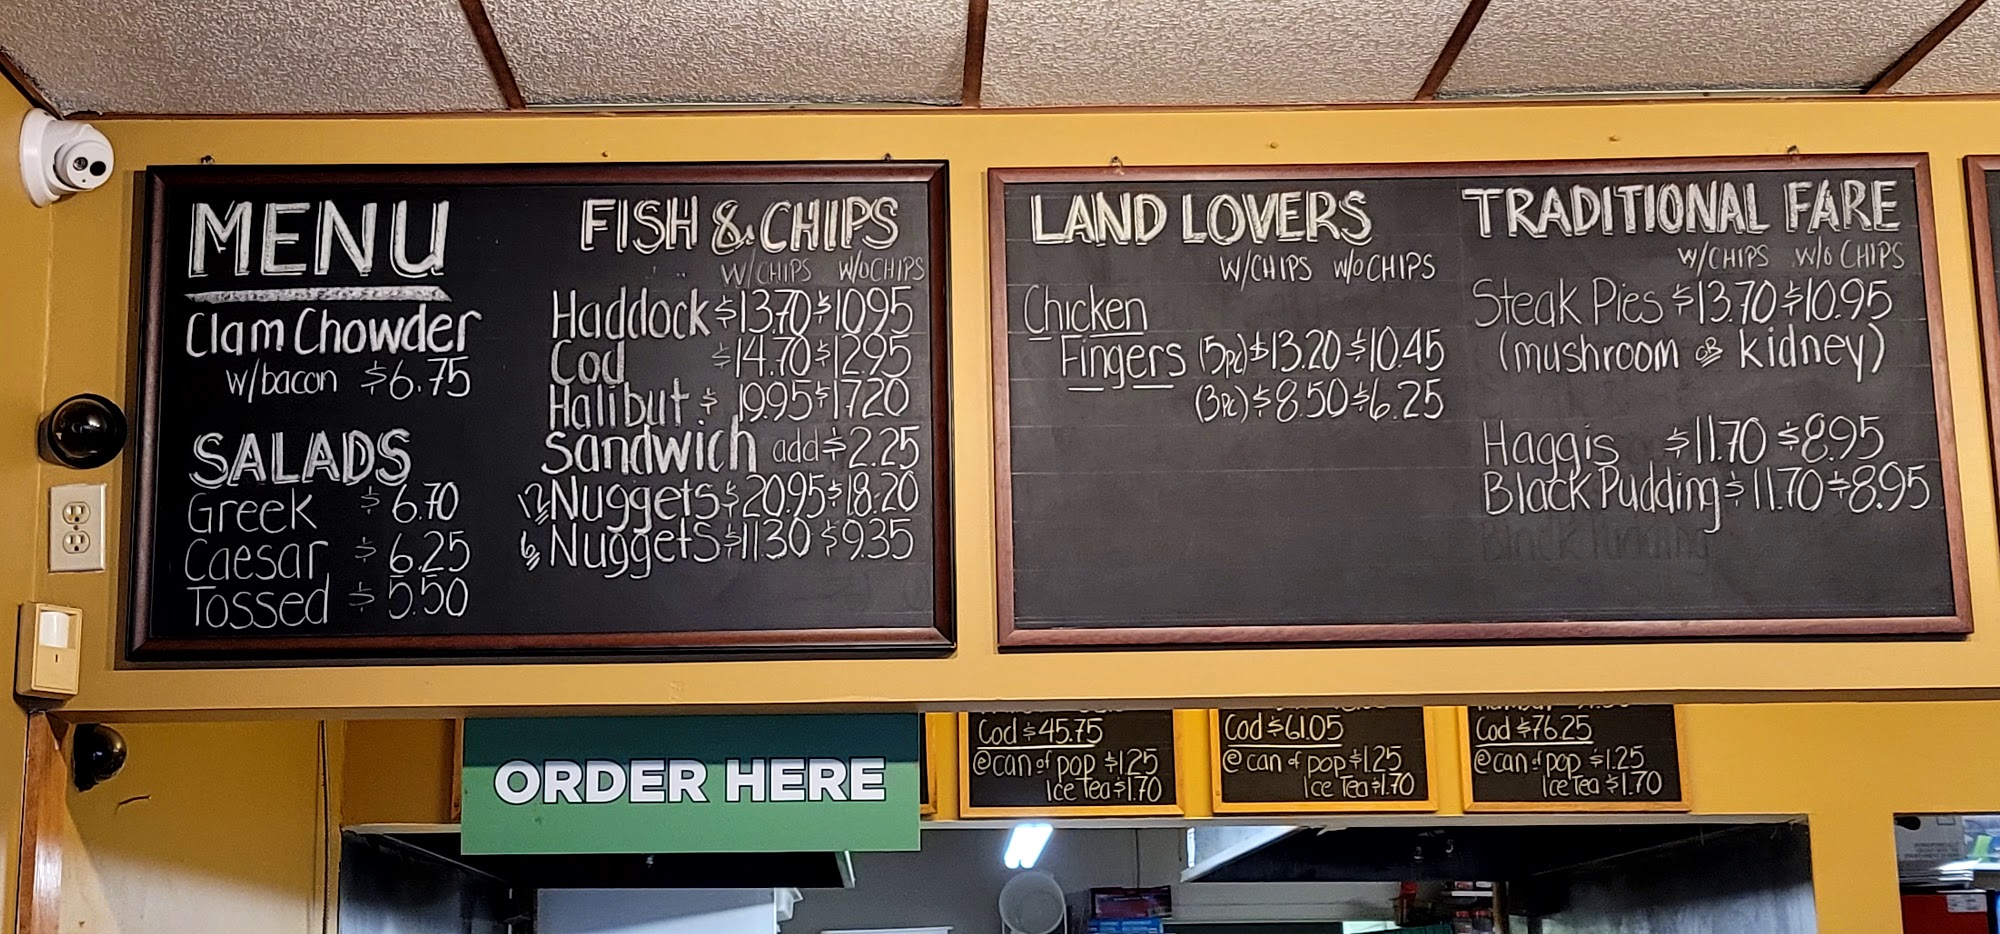 MENU
Clam Chowder
w/bacon $6.75
SALADS
Greek $6.70
Caesar $6.25
Tossed $5.50
FISH & CHIPS
W/CHIPS W/OCHIPS
Haddock $13.70 $10.95
Cod $14.70 $12.95
Halibut $19.95 $17.20
Sandwich add $2.25
12 Nuggets $20.95 $18.20
6 Nuggets $11.30 $9.35
LAND LOVERS
W/CHIPS W/O CHIPS
Chicken
Fingers (5pc) $13.20 $10.45
(3pc) $8.50 $6.25
TRADITIONAL FARE
W/CHIPS W/O CHIPS
Steak Pies $13.70 $10.95
(mushroom OR kidney)
Haggis $11.70 $8.95
Black Pudding $11.70 $8.95
Black Pudding
ORDER HERE
Cod $45.75
@can of pop $1.25
Ice Tea $1.70
Cod $61.05
@can of pop $1.25
Ice Tea $1.70
Cod $76.25
@can of pop $1.25
Ice Tea $1.70